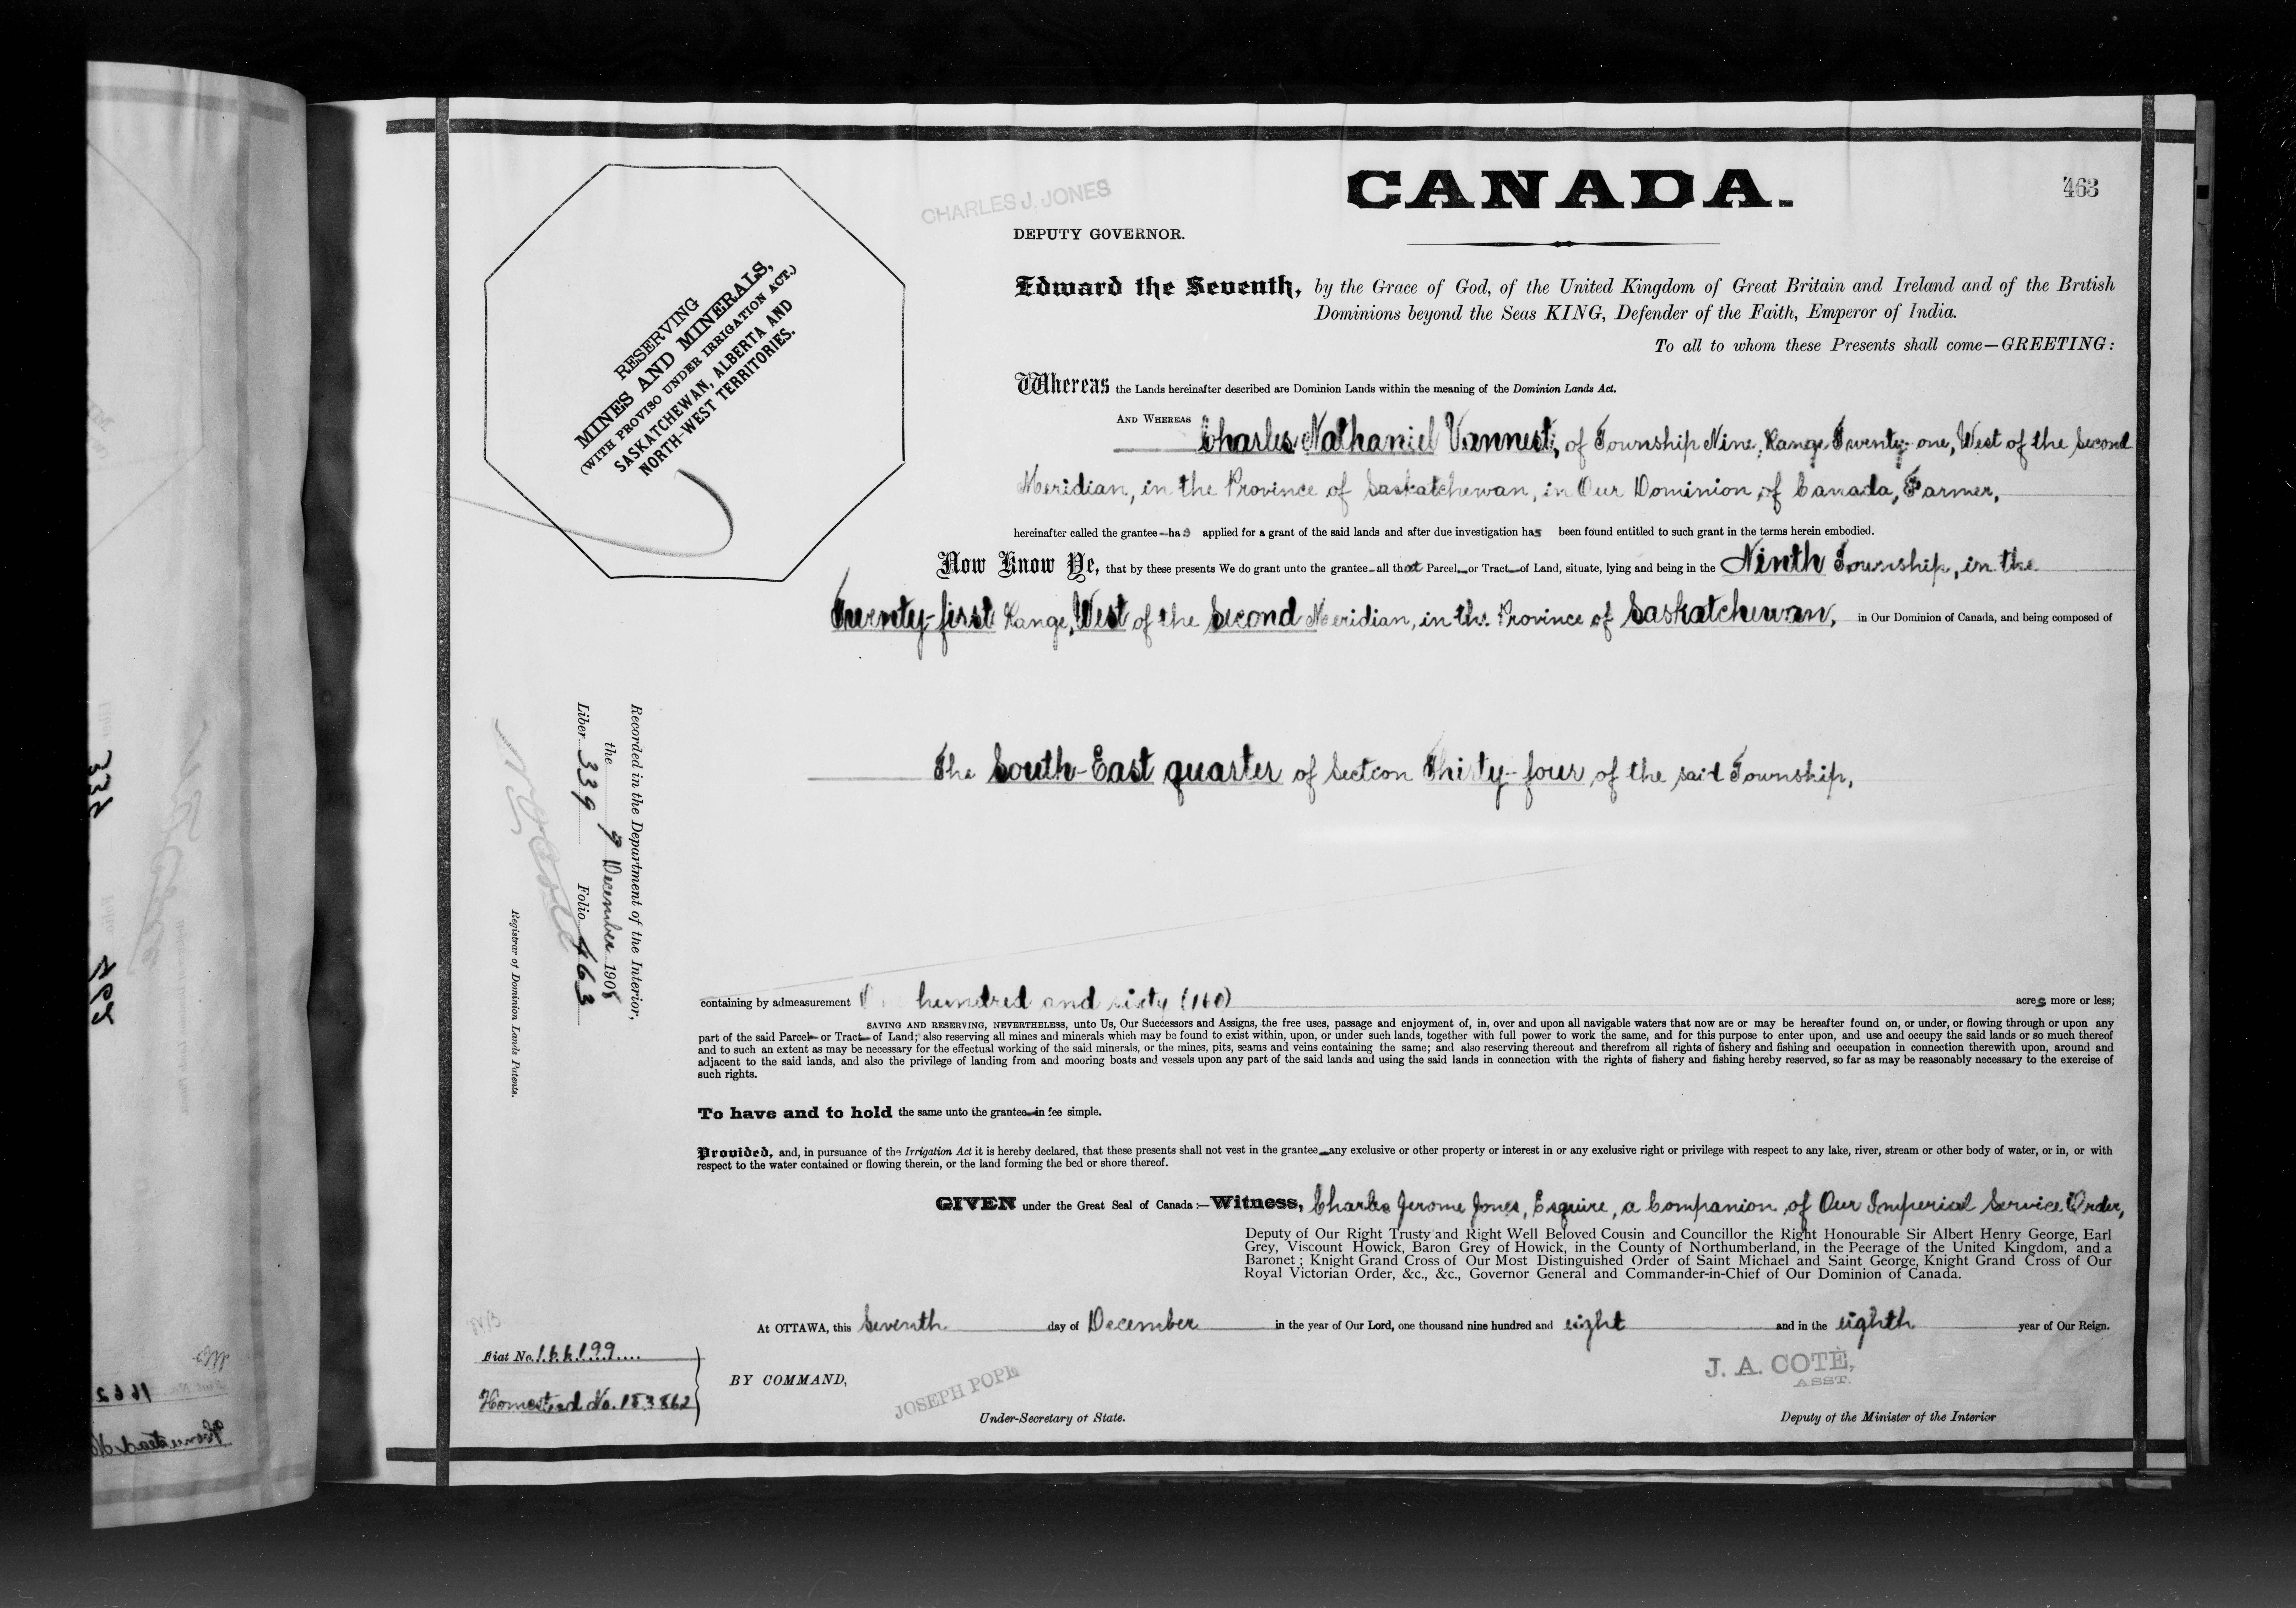 CHARLES J. JONES
CANADA.
463
DEPUTY GOVERNOR.
RESERVING
MINES AND MINERALS,
(WITH PROVISO UNDER IRRIGATION ACT.)
SASKATCHEWAN, ALBERTA AND
NORTH-WEST TERRITORIES.
Edward the Seventh, by the Grace of God, of the United Kingdom of Great Britain and Ireland and of the British
Dominions beyond the Seas KING, Defender of the Faith, Emperor of India.
To all to whom these Presents shall come—GREETING:
Whereas the Lands hereinafter described are Dominion Lands within the meaning of the Dominion Lands Act.
AND WHEREAS
Charles Nathaniel Vannest, of Township Nine, Range Twenty-one, West of the Second
Meridian, in the Province of Saskatchewan, in Our Dominion of Canada, Farmer,
hereinafter called the grantee—has applied for a grant of the said lands and after due investigation has been found entitled to such grant in the terms herein embodied.
Now Know Ye, that by these presents We do grant unto the grantee—all that Parcel—or Tract—of Land, situate, lying and being in the Ninth Township, in the
Twenty-first Range, West of the Second Meridian, in the Province of Saskatchewan, in Our Dominion of Canada, and being composed of
The South-East quarter of Section Thirty-four of the said Township,
Recorded in the Department of the Interior,
the 9 December 1908
Liber 339 Folio 463
Registrar of Dominion Lands Patents.
containing by admeasurement One hundred and sixty (160) acres more or less;
SAVING AND RESERVING, NEVERTHELESS, unto Us, Our Successors and Assigns, the free uses, passage and enjoyment of, in, over and upon all navigable waters that now are or may be hereafter found on, or under, or flowing through or upon any
part of the said Parcel— or Tract— of Land; also reserving all mines and minerals which may be found to exist within, upon, or under such lands, together with full power to work the same, and for this purpose to enter upon, and use and occupy the said lands or so much thereof
and to such an extent as may be necessary for the effectual working of the said minerals, or the mines, pits, seams and veins containing the same; and also reserving thereout and therefrom all rights of fishery and fishing and occupation in connection therewith upon, around and
adjacent to the said lands, and also the privilege of landing from and mooring boats and vessels upon any part of the said lands and using the said lands in connection with the rights of fishery and fishing hereby reserved, so far as may be reasonably necessary to the exercise of
such rights.
To have and to hold the same unto the grantee—in fee simple.
Provided, and, in pursuance of the Irrigation Act it is hereby declared, that these presents shall not vest in the grantee—any exclusive or other property or interest in or any exclusive right or privilege with respect to any lake, river, stream or other body of water, or in, or with
respect to the water contained or flowing therein, or the land forming the bed or shore thereof.
GIVEN under the Great Seal of Canada:—Witness, Charles Jerome Jones, Esquire, a Companion of Our Imperial Service Order,
Deputy of Our Right Trusty and Right Well Beloved Cousin and Councillor the Right Honourable Sir Albert Henry George, Earl
Grey, Viscount Howick, Baron Grey of Howick, in the County of Northumberland, in the Peerage of the United Kingdom, and a
Baronet; Knight Grand Cross of Our Most Distinguished Order of Saint Michael and Saint George, Knight Grand Cross of Our
Royal Victorian Order, &c., &c., Governor General and Commander-in-Chief of Our Dominion of Canada.
At OTTAWA, this Seventh day of December in the year of Our Lord, one thousand nine hundred and eight and in the eighth year of Our Reign.
Fiat No. 166199
Homestead No. 153862
BY COMMAND,
JOSEPH POPE
Under-Secretary of State.
J. A. COTÈ,
ASST.
Deputy of the Minister of the Interior